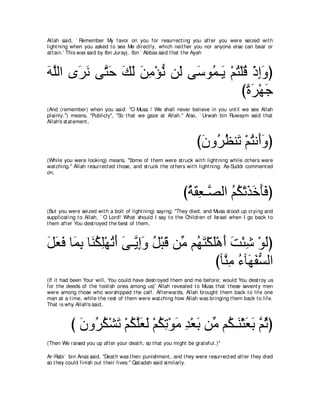 Allah said, ` Remember My favor on you for resurrecting you after you were seized with
lightning when you asked to see Me directly, which neither you nor anyone else can bear or
attain.' This was said by Ibn Jurayj. Ibn ` Abbas said that the Ayah
(وَإِذْ قُلْتُمْ يَـمُوسَى لَن نُّؤْمِنَ لَكَ حَتَّى نَرَى اللَّهَ
جَهْرَةً)
(And (remember) when you said: "O Musa ! We shall never believe in you until we see Allah
plainly.") means, "Publicly", "So that we gaze at Allah." Also, ` Urwah bin Ruwaym said that
Allah's statement,
(وَأَنتُمْ تَنظُرُونَ)
(While you were looking) means, "Some of them were struck with lightning while others were
watching." Allah resurrected those, and struck the others with lightning. As-Suddi commented
on,
(فَأَخَذَتْكُمُ الصَّـعِقَةُ)
(But you were seized with a bolt of lightning) saying; "They died, and Musa stood up crying and
supplicating to Allah, ` O Lord! What should I say to the Children of Israel when I go back to
them after You destroyed the best of them,
(لَوْ شِئْتَ أَهْلَكْتَهُم مِّن قَبْلُ وَإِيَّـىَ أَتُهْلِكُنَا بِمَا فَعَلَ
السُّفَهَآءُ مِنَّآ)
(If it had been Your will, You could have destroyed them and me before; would You destroy us
for the deeds of the foolish ones among us)' Allah revealed to Musa that these seventy men
were among those who worshipped the calf. Afterwards, Allah brought them back to life one
man at a time, while the rest of them were watching how Allah was bringing them back to life.
That is why Allah's said,
(ثُمَّ بَعَثْنَـكُم مِّن بَعْدِ مَوْتِكُمْ لَعَلَّكُمْ تَشْكُرُونَ )
(Then We raised you up after your death, so that you might be grateful.)"
Ar-Rabi` bin Anas said, "Death was their punishment, and they were resurrected after they died
so they could finish out their lives." Qatadah said similarly.